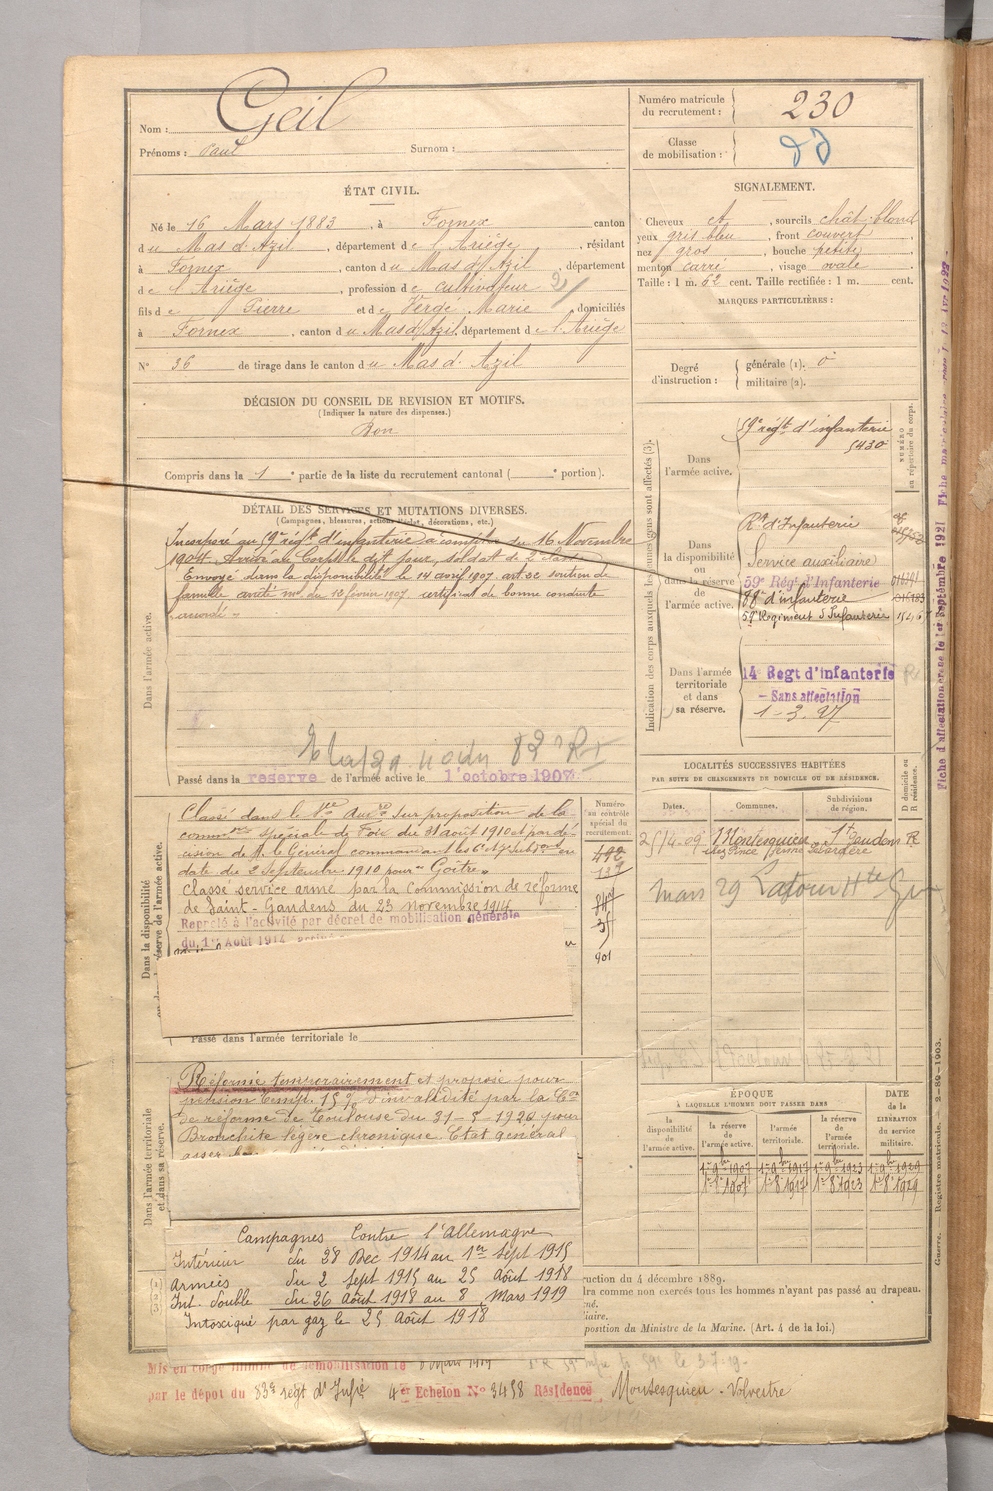 Nom : Geil
Prénoms : Paul Surnom :
Numéro matricule du recrutement : 230
Classe de mobilisation :
ÉTAT CIVIL.
Né le 16 Mars 1883, à Fornex canton
du Mas d'Azil, département de l'Ariège, résidant
à Fornex, canton du Mas d'Azil, département
de l'Ariège, profession de cultivateur
fils de Pierre et de Vergé Marie, domiciliés
à Fornex, canton du Mas d'Azil, département de l'Ariège
N° 36 de tirage dans le canton du Mas d'Azil
SIGNALEMENT.
Cheveux et, sourcils chât-blond
yeux gris bleu, front couvert,
nez gros, bouche petite,
menton carré, visage ovale
Taille : 1 m. 62 cent. Taille rectifiée : 1 m. cent.
MARQUES PARTICULIÈRES :
Degré d'instruction : générale (1). 0
militaire (2).
DÉCISION DU CONSEIL DE REVISION ET MOTIFS.
(Indiquer la nature des dispenses.)
Bon
Compris dans la 1e partie de la liste du recrutement cantonal ( e portion).
DÉTAIL DES SERVICES ET MUTATIONS DIVERSES.
(Campagnes, blessures, actions d'éclat, décorations, etc.)
Dans l'armée active.
Incorporé au 59e régt d'infanterie à compter du 16 Novembre
1904. Arrivé au Corps le dit jour, soldat de 2e classe
Envoyé dans la disponibilité le 14 avril 1907. art. 22 soutien de
famille arrêté mel du 12 février 1907. certificat de bonne conduite
accordé.
Passé dans la réserve de l'armée active le 1 octobre 1907
Indication des corps auxquels les jeunes gens sont affectés (3).
NUMÉRO au répertoire du corps.
Dans l'armée active.
59e régt d'infanterie
5430
Dans la disponibilité ou dans la réserve de l'armée active.
Rt d'Infanterie
Service auxiliaire
59e Régt d'Infanterie
88e d'infanterie
59e Régiment d'Infanterie
Dans l'armée territoriale et dans sa réserve.
14e Regt d'infanterie
- Sans affectation
1-3.27
Fiche d'affectation
1er Septembre 1921
LOCALITÉS SUCCESSIVES HABITÉES
PAR SUITE DE CHANGEMENTS DE DOMICILE OU DE RÉSIDENCE.
Dates. Communes. Subdivisions de région. D domicile ou R résidence.
25-4-09 Montesquieu St Gaudens R
mars 29 Latour Hte
Numéro au contrôle spécial du recrutement.
492
901
Dans la disponibilité ou dans la réserve de l'armée active.
Classé dans le Sce Auxre sur proposition de la
common spéciale de Foix du 31 août 1910 et par dé-
cision de M. le Général commandant les 6e et 7e Subons en
date du 2 Septembre 1910 pour "Goître"
Classé service armé par la Commission de réforme
de Saint-Gaudens du 23 novembre 1914
Rappelé à l'activité par décret de mobilisation générale
du 1er Août 1914
Passé dans l'armée territoriale le
Dans l'armée territoriale et dans sa réserve.
Réformé temporairement et proposé pour
pension temp. 15% d'invalidité par la Con
de réforme de Toulouse du 31-5-1920 pour
Bronchite légère chronique. Etat général
ÉPOQUE
À LAQUELLE L'HOMME DOIT PASSER DANS
la disponibilité de l'armée active. la réserve de l'armée active. l'armée territoriale. la réserve de l'armée territoriale.
DATE de la LIBÉRATION du service militaire.
1er 8bre 1907 1er 8bre 1917 1er 8bre 1923 1er 8bre 1929
Campagnes Contre l'Allemagne
Intérieur du 28 Dec 1914 au 1er Sept 1915
Armées du 2 Sept 1915 au 25 Août 1918
Int. double du 26 Août 1918 au 8 Mars 1919
Intoxiqué par gaz le 25 Août 1918
(1)
(2)
(3)
ruction du 4 décembre 1889.
dra comme non exercés tous les hommes n'ayant pas passé au drapeau.
né.
liaire.
position du Ministre de la Marine. (Art. 4 de la loi.)
Guerre. Registre matricule. - 2-89-1903.
Mis en congé illimité de démobilisation le
par le dépôt du 83e régt d'Infrie 4er Echelon N° 3458 Résidence Montesquieu-Volvestre